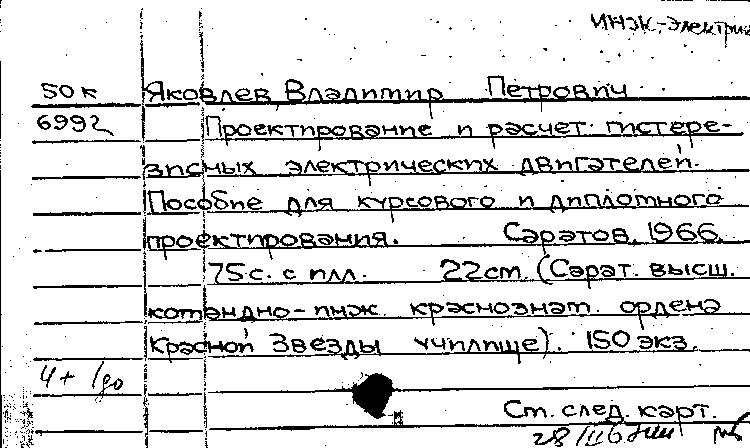 инэк.-электрик
50к Яковлев, Владимир Петрович
6992 Проектирование и расчет гистере-
зисных электрических двигателей.
Пособие для курсового и дипломного
проектирования. Саратов, 1966.
75с. с илл. 22см. (Сарат. высш.
командно-инж. краснознам. ордена
Красной Звезды училище). 150 экз.
4+1до
См. след. карт.